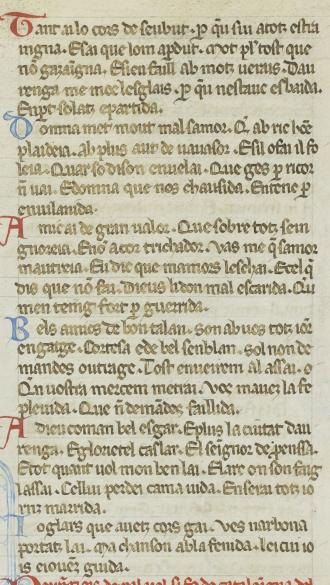 Tant ai lo cors de seubut. p qu sui atotz estra
ingna. E sai que lom apdut. Mot pl' tost que
nō gazaingna. E sieu faill ab motz uerais. Dau
renga me moc lesglais. p qu nestauc esbaida.
En pt solatz epartida.
Domna met mout mal samor. Q ab ric hōe
plaideia. Ab plus aut de uauasor. E sil ofai il fo
leia. Quar so dison en uelai. Que ges p ricor
n̄ uai. E domna que nes chausida. En tenc p
enuilanida.
Amic ai de gran ualor. Que sobre totz sein
gnoreia. E nō a cor trichador. Vas me q̄ samor
mautreia. Eu dic que mamors leschai. E cel q̄
dis que nō fai. Dieus li don mal escarida. Qui
men teing fort p guerida.
Bels amics de bon talan. Son ab uos totz iorz
en gatge. Cortesa e de bel senblan. Sol non de
mandes outrage. Tost en ueirem al assai. Q
Qn uostra mercem metrai. Vos mauetz la fe
pleuida. Que n̄ demādes faillida.
A dieu coman bel esgar. E plus la ciutat dau
renga. E glorietel caslar. E el seignor de penssa.
E tot quant uol mon ben lai. E larc on son faig
lassai. Celui perdei cama uida. En serai totz io
rnz marrida.
Ioglars que auetz cors gai. Ves narbona
portatz lai. Ma chanson ab la fenida. lei cui io
is eiouez guida.